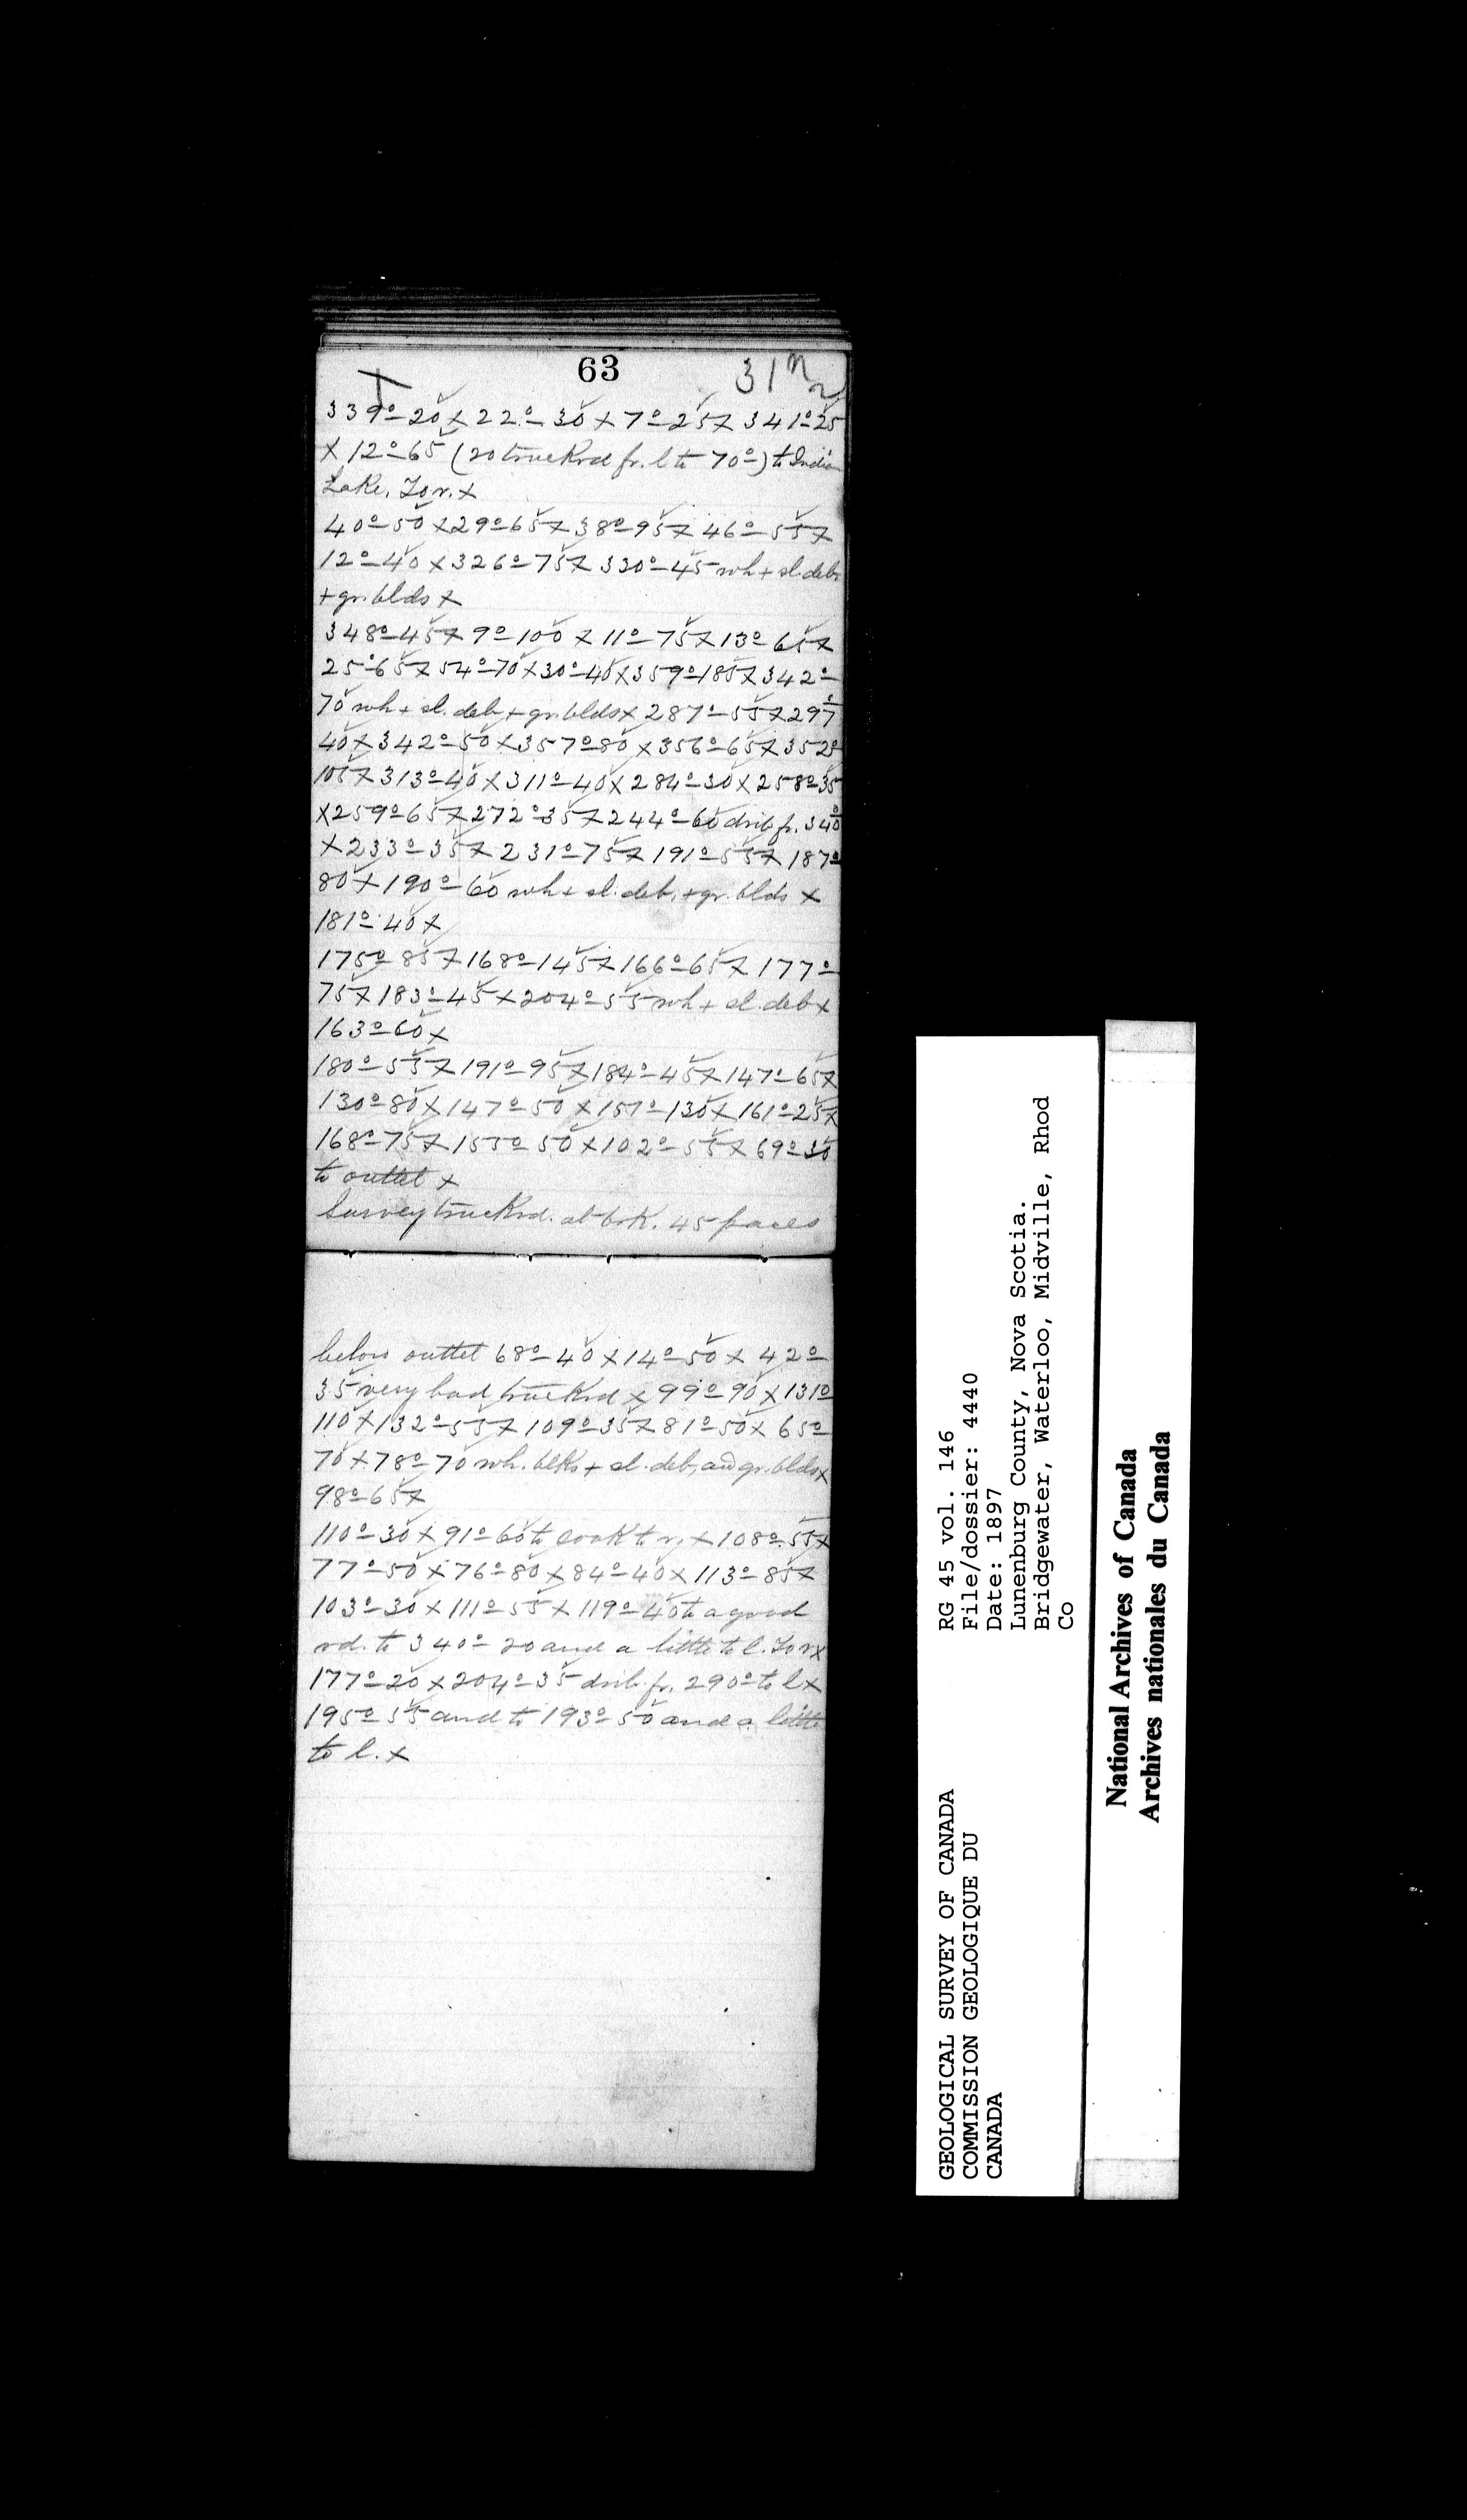 63
339°-20 x 22°-30 x 7°-25 x 341°-25
x 12°-65 (20 truckrd fr. l to 70°) to Indian
Lake. To r. x
40°-50 x 29°-65 x 38°-95 x 46°-55 x
12°-40 x 326°-75 x 330°-45 wh + sl. deb.
+ gr. blds x
348°-45 x 9°-100 x 11°-75 x 13°-65 x
25°-65 x 54°-70 x 30°-40 x 359°-185 x 342°-
70 wh + sl. deb + gr. blds x 287°-55 x 297°
40 x 342°-50 x 357°-80 x 356°-65 x 352°
105 x 313°-40 x 311°-40 x 284°-30 x 258°-35
x 259°-65 x 272°-35 x 244°-60 drib fr. 340°
x 233°-35 x 231°-75 x 191°-55 x 187°
80 x 190°-60 wh + sl. deb. + gr. blds x
181°-40 x
175°-85 x 168°-145 x 166°-65 x 177°-
75 x 183°-45 x 204°-55 wh + sl. deb x
163°-60 x
180°-55 x 191°-95 x 184°-45 x 147°-65 x
130°-80 x 147°-50 x 151°-130 x 161°-25 x
168°-75 x 155°-50 x 102°-55 x 69°-30
to outlet x
Survey truckrd. at brk. 45 paces
below outlet 68°-40 x 14°-50 x 42°-
35 very bad truckrd x 99°-90 x 131°
110 x 132°-55 x 109°-35 x 81°-50 x 65°
70 x 78°-70 wh. blks + sl. deb, and gr. blds x
98°-65 x
110°-30 x 91°-60 to r. x 108°-55 x
77°-50 x 76°-80 x 84°-40 x 113°-85 x
103°-30 x 111°-55 x 119°-40 to a good
rd. to 340°-20 and a little to l. To r x
177°-20 x 204°-35 drib. fr. 290° to l x
195°-55 and to 193°-50 and a little
to l. x
GEOLOGICAL SURVEY OF CANADA
COMMISSION GEOLOGIQUE DU
CANADA
RG 45 vol. 146
File/dossier: 4440
Date: 1897
Lunenburg County, Nova Scotia.
Bridgewater, Waterloo, Midville, Rhod
Co
National Archives of Canada
Archives nationales du Canada